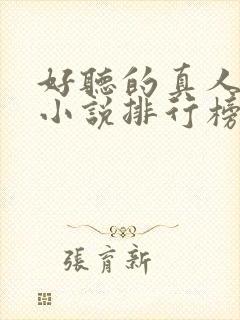 好聽的真人
小說排行榜
張育新